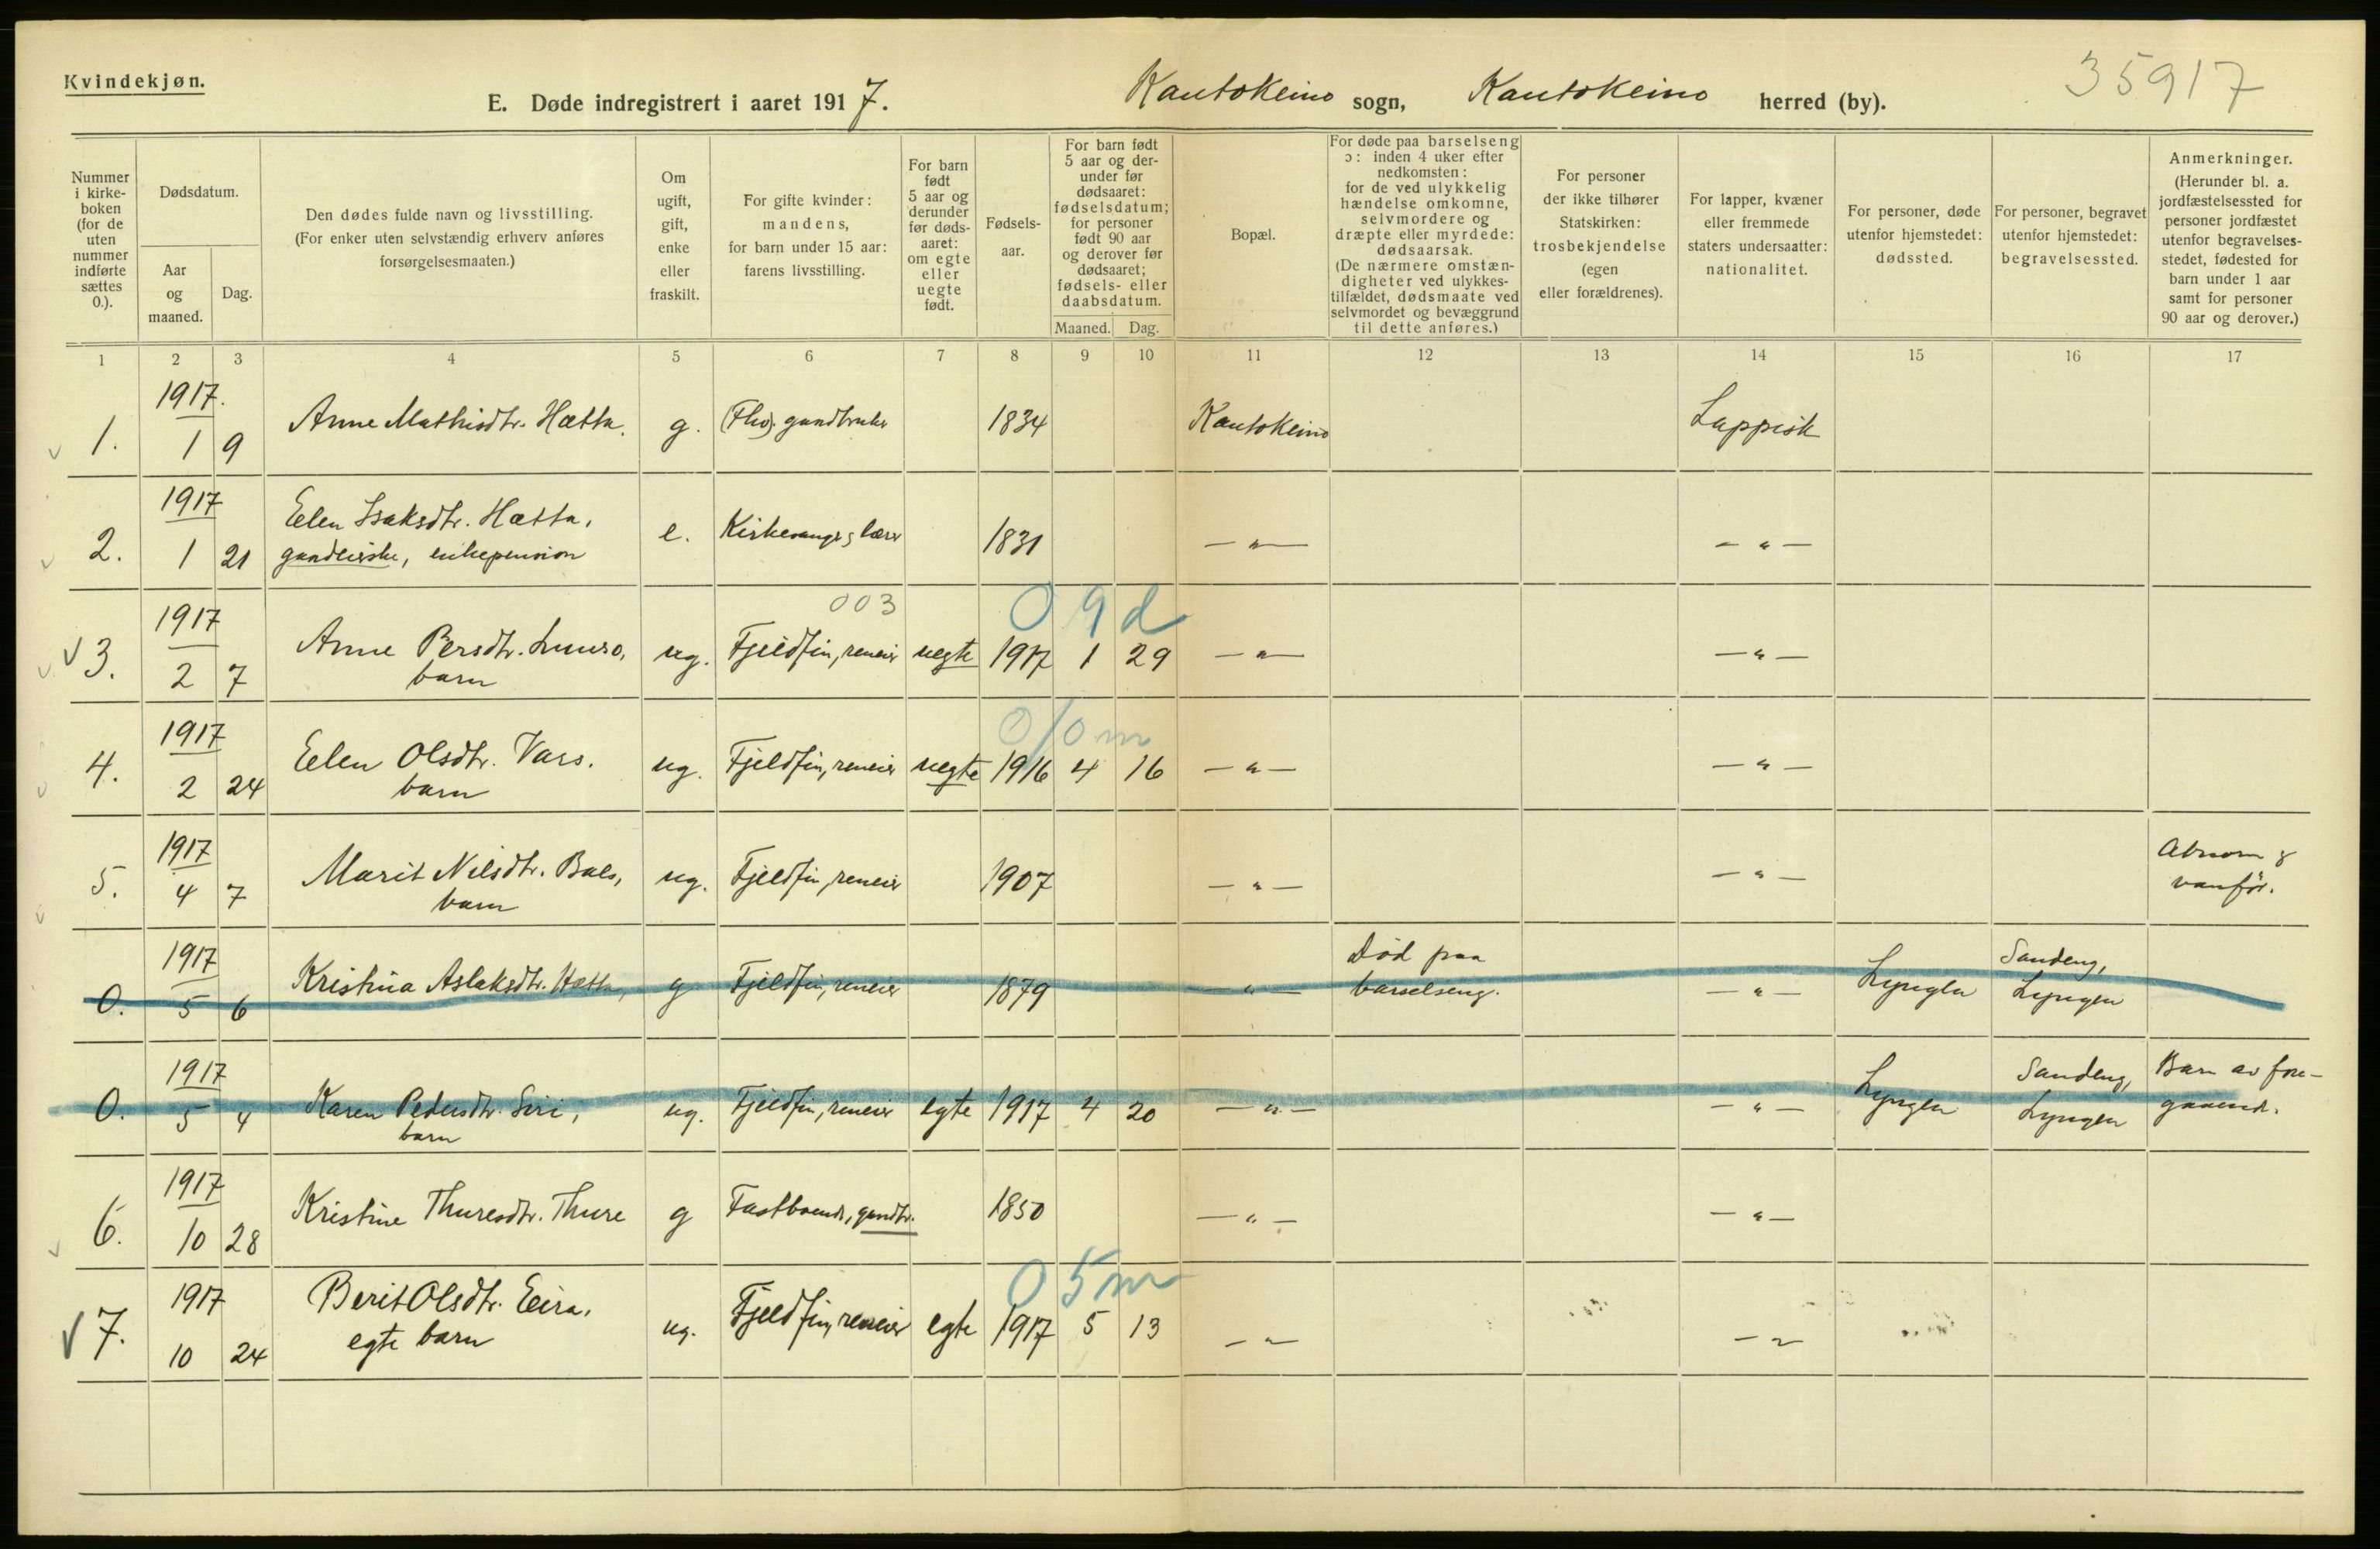 Kvindekjøn.
E. Døde indregistrert i aaret 1917.
Kautokeino sogn, Kautokeino herred (by).
35917
Nummer i kirke- boken (for de uten nummer indførte sættes 0.).
Dødsdatum.
Aar og maaned.
Dag.
Den dødes fulde navn og livsstilling.
(For enker uten selvstændig erhverv anføres
forsørgelsesmaaten.)
Om ugift, gift, enke eller fraskilt.
For gifte kvinder: mandens, for barn under 15 aar: farens livsstilling.
For barn født 5 aar og derunder før døds- aaret: om egte eller uegte født.
Fødsels- aar.
For barn født 5 aar og der- under før dødsaaret: fødselsdatum; for personer født 90 aar og derover før dødsaaret; fødsels- eller daabsdatum.
Maaned. Dag.
Bopæl.
For døde paa barselseng ɔ: inden 4 uker efter nedkomsten: for de ved ulykkelig hændelse omkomne, selvmordere og dræpte eller myrdede: dødsaarsak. (De nærmere omstæn- digheter ved ulykkes- tilfældet, dødsmaate ved selvmordet og bevæggrund til dette anføres.)
For personer der ikke tilhører Statskirken: trosbekjendelse (egen eller forældrenes).
For lapper, kvæner eller fremmede staters undersaatter: nationalitet.
For personer, døde utenfor hjemstedet: dødssted.
For personer, begravet utenfor hjemstedet: begravelsessted.
Anmerkninger. (Herunder bl. a. jordfæstelsessted for personer jordfæstet utenfor begravelses- stedet, fødested for barn under 1 aar samt for personer 90 aar og derover.)
1 2 3 4 5 6 7 8 9 10 11 12 13 14 15 16 17
1917.
1. 1 9 Anne Mathisdtr. Hætta. g. gaardbruker 1834 Kautokeino Lappisk
1917
2. 1 21 Eelen Isaksdtr. Hætta, e. Kirkesanger & lærer 1831 — " — — " —
gaardeierske, enkepension
003 0 9 d
1917
3. 2 7 Anne Persdtr. ug. Fjeldfin, reneier uegte 1917 1 29 — " — — " —
barn
0 10 m
1917
4. 2 24 Eelen Olsdtr. Vars. ug. Fjeldfin, reneier uegte 1916 4 16 — " — — " —
barn
1917
5. 4 7 Marit Nilsdtr. Bals, ug. Fjeldfin, reneier 1907 — " — — " — Abnorm &
barn vanför.
1917
0. 5 6 Kristina Aslaksdtr. Hætta, g Fjeldfin, reneier 1879 — " — Död paa barselseng. — " — Lyngen Sandeng, Lyngen
1917
0. 5 4 Karen Pedersdtr. Siri, ug. Fjeldfin, reneier egte 1917 4 20 — " — — " — Lyngen Sandeng, Lyngen Barn av fore- gaaende.
barn
1917
6. 10 28 Kristine Thuresdtr. Thure g Fastboende, gaardbr. 1850 — " — — " —
0 5 m
1917
7. 10 24 Berit Olsdtr. Eira, ug. Fjeldfin, reneier egte 1917 5 13 — " — " 
egte barn